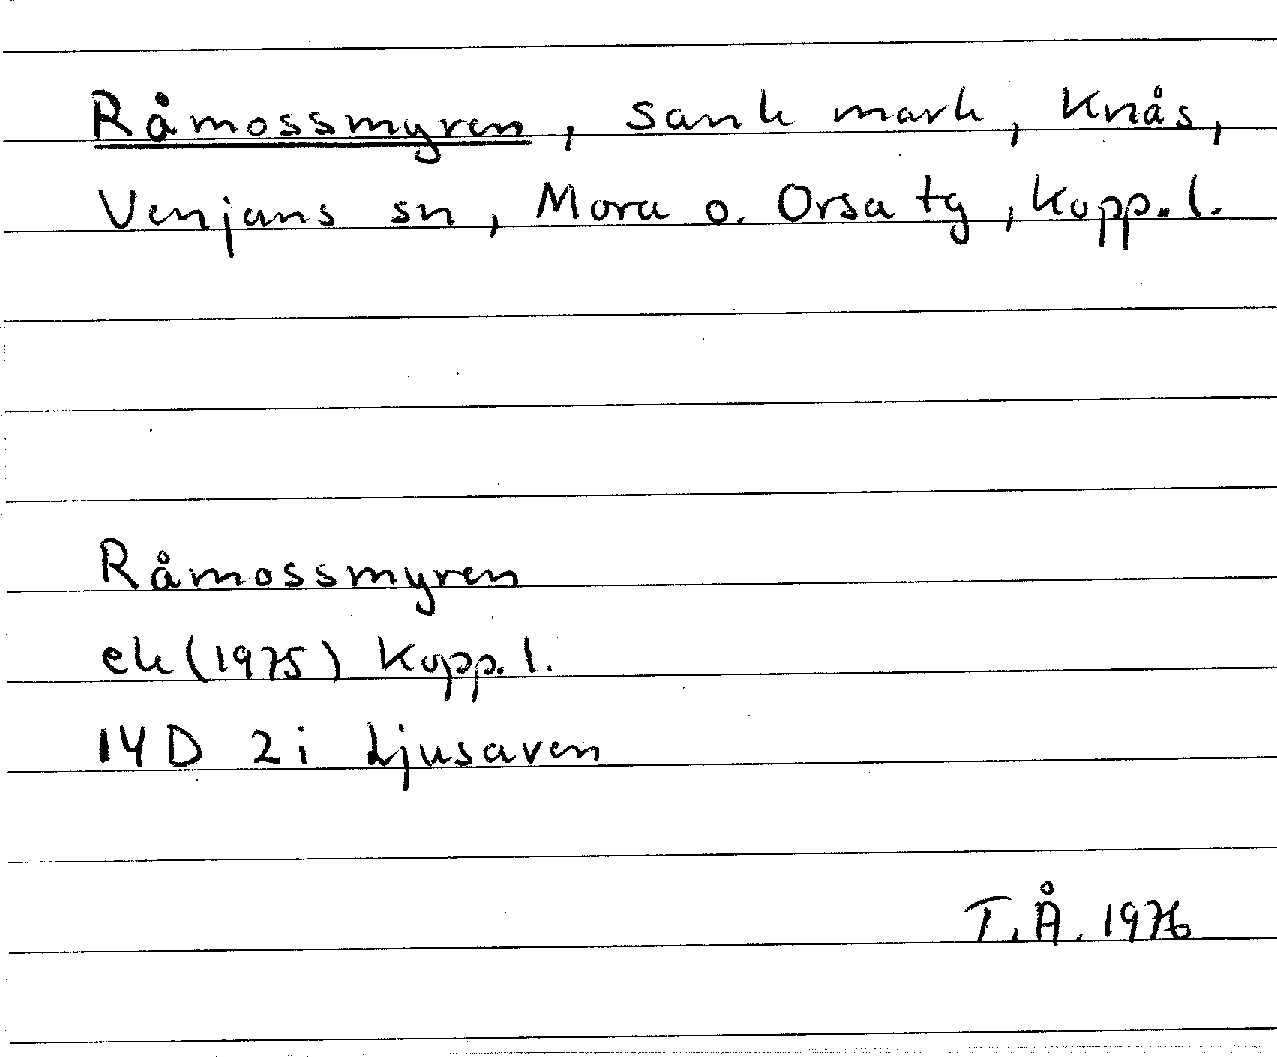 Råmossmyren, sank mark, Knås,
Venjans sn, Mora o. Orsa tg, Kopp. l.
Råmossmyren
ek (1975) Kopp. l.
14D 2i Ljusaven
T.Å. 1976